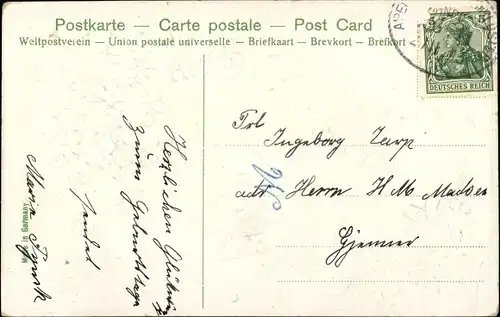 Postkarte — Carte postale — Post Card
Weltpostverein — Union postale universelle — Briefkaart — Brevkort — Brefkort
DEUTSCHES REICH
Frl
Ingeborg Tarp
adr Herrn H M Madsen
Gjenner
Herzlichen Glückw
zum Geburtstage
sendet
Marie
Made in Germany